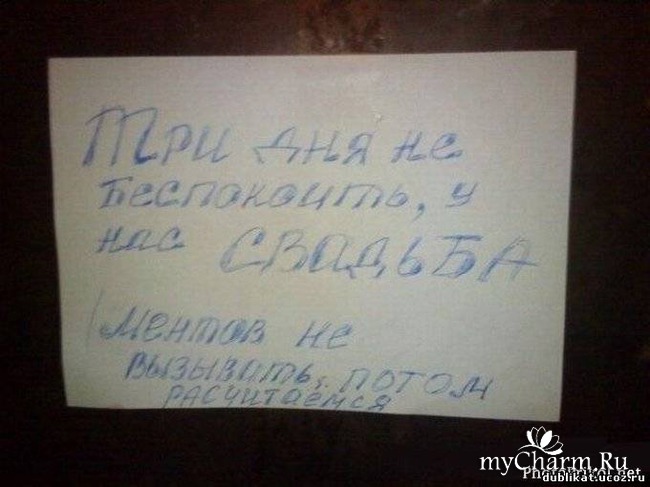 Три дня не
беспокоить, у
нас СВАДЬБА
Ментов не
вызывать, потом
расчитаемся
myCharm.Ru
dublikat.ucoz.ru